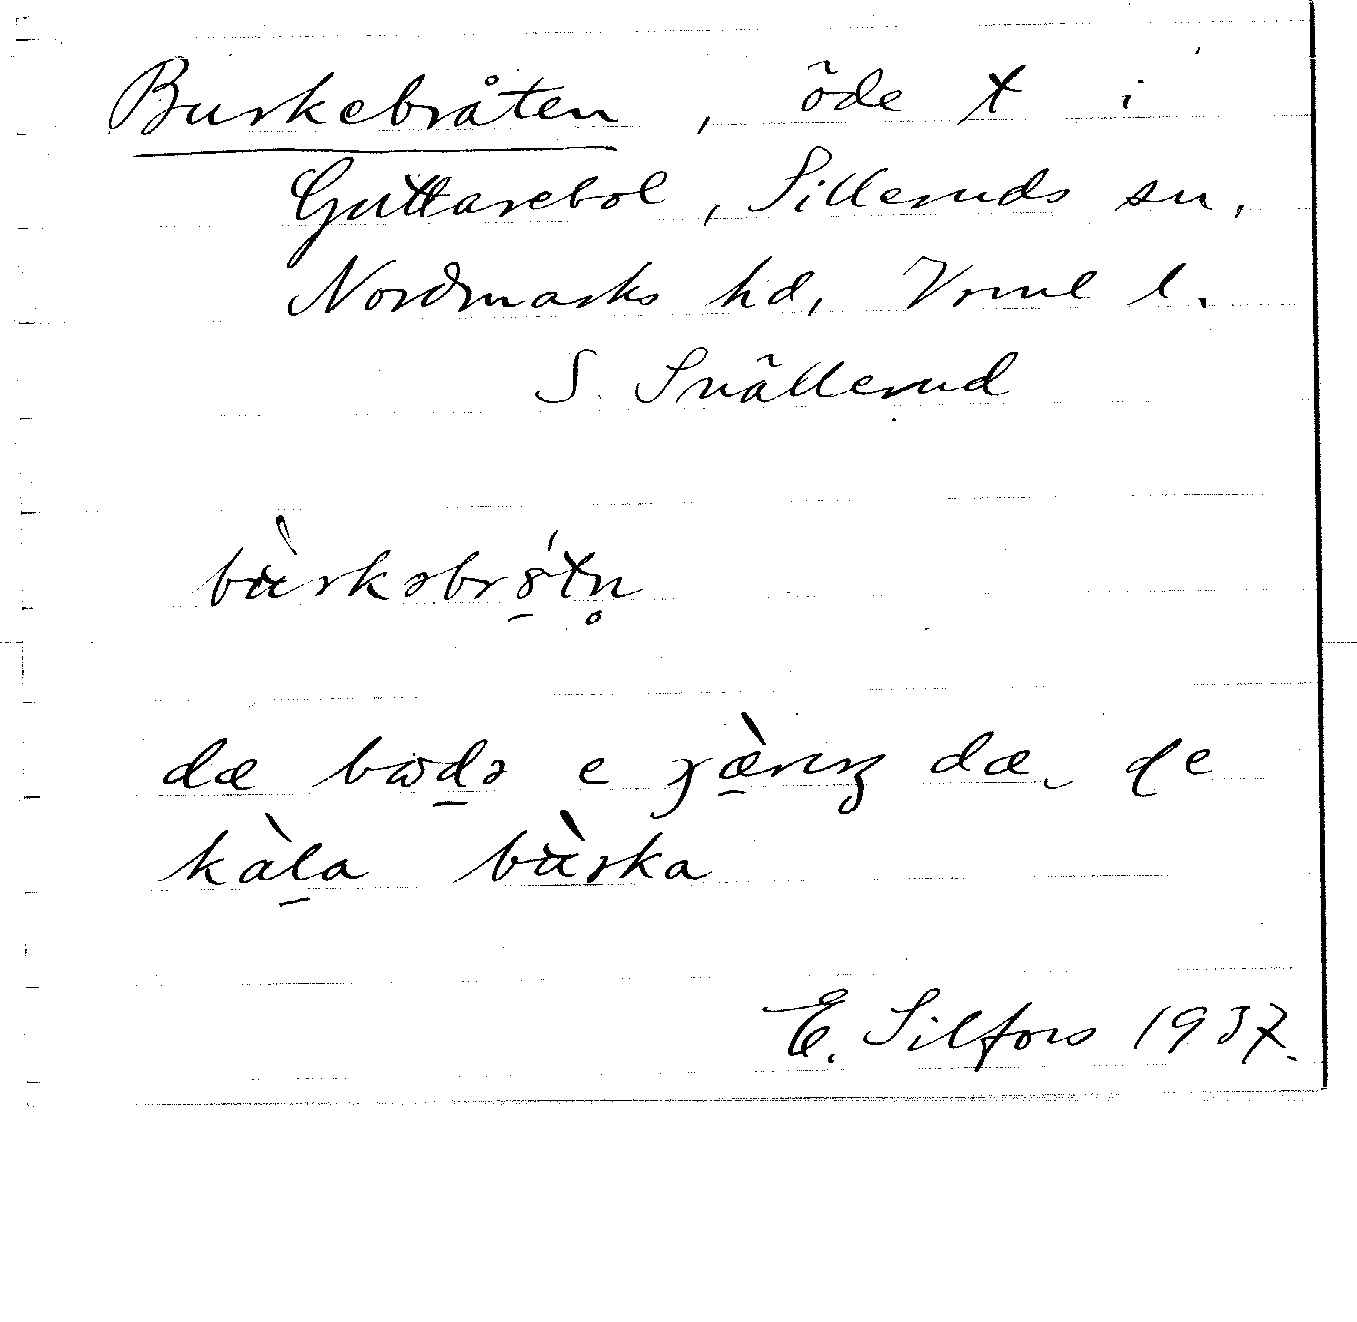 Burkebråten, öde t i
Guttarebol, Silleruds sn,
Nordmarks hd, Vrml l.
S. Snällerud
bùrkəbrǻtn̥
dæ bodə e gæ̀reŋ dæ, de
kàla bùrka
E. Silfors 1937.